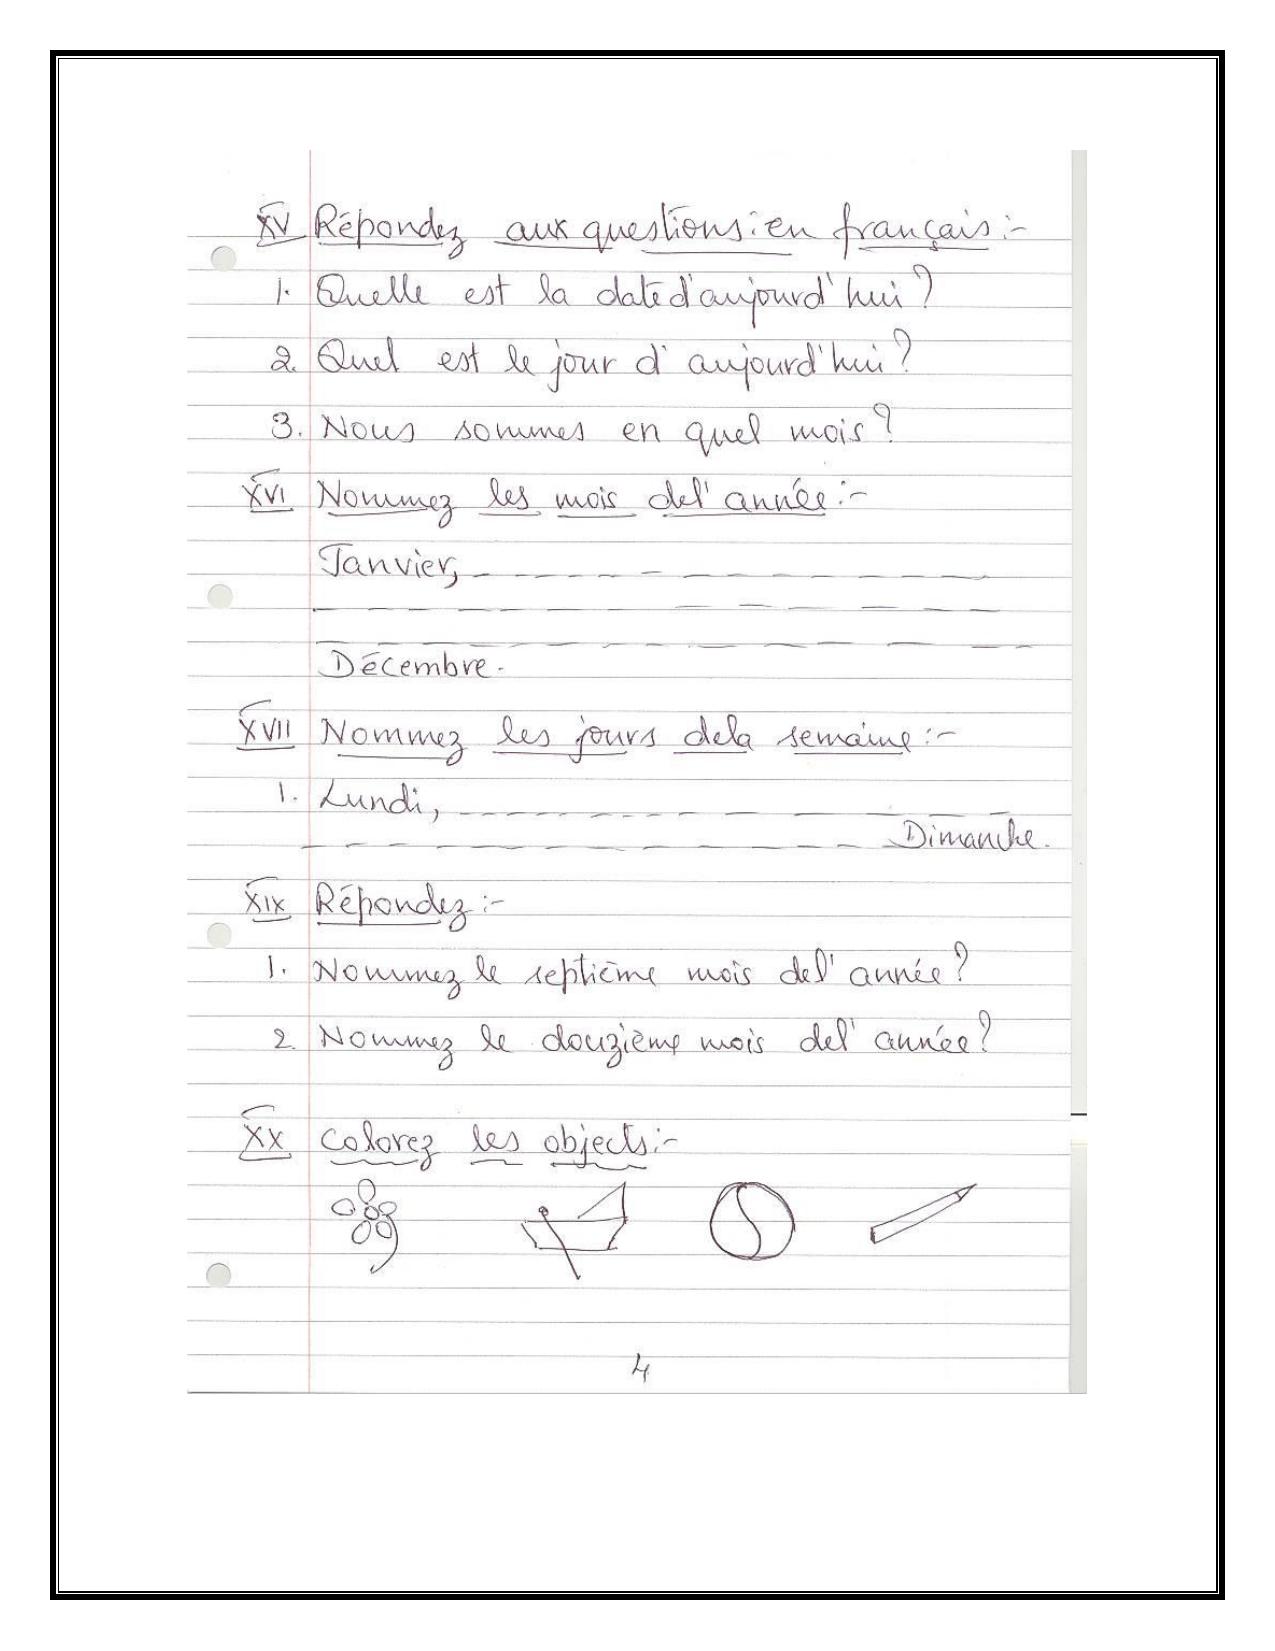 XV Répondez aux questions: en français :-
1. Quelle est la date d'aujourd'hui ?
2. Quel est le jour d'aujourd'hui ?
3. Nous sommes en quel mois ?
XVI Nommez les mois del'année :-
Janvier,
Décembre.
XVII Nommez les jours dela semaine :-
1. Lundi,
Dimanche.
XIX Répondez :-
1. Nommez le septième mois del'année ?
2. Nommez le douzième mois del'année ?
XX Colorez les objects :-
4